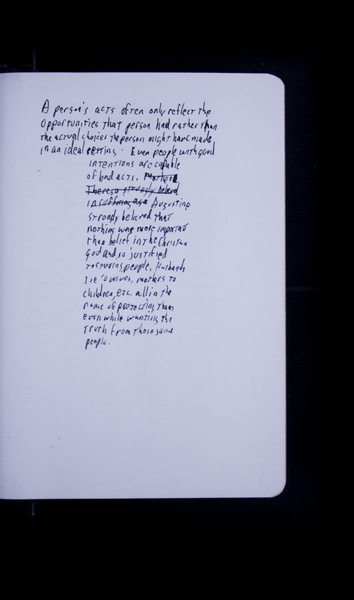 A person's acts often only reflect the
opportunities that person had rather than
the actual choices the person might have made
in an ideal setting. Even people with good
intentions are capable
of bad acts. Mother
Theresa strongly believed
in suffering as a Augustine
strongly believed that
nothing was more important
than belief in the Christian
God and so justified
torturing people. Husbands
lie to wives, mothers to
children, etc. all in the
name of protecting them
even while wanting the
truth from those same
people.